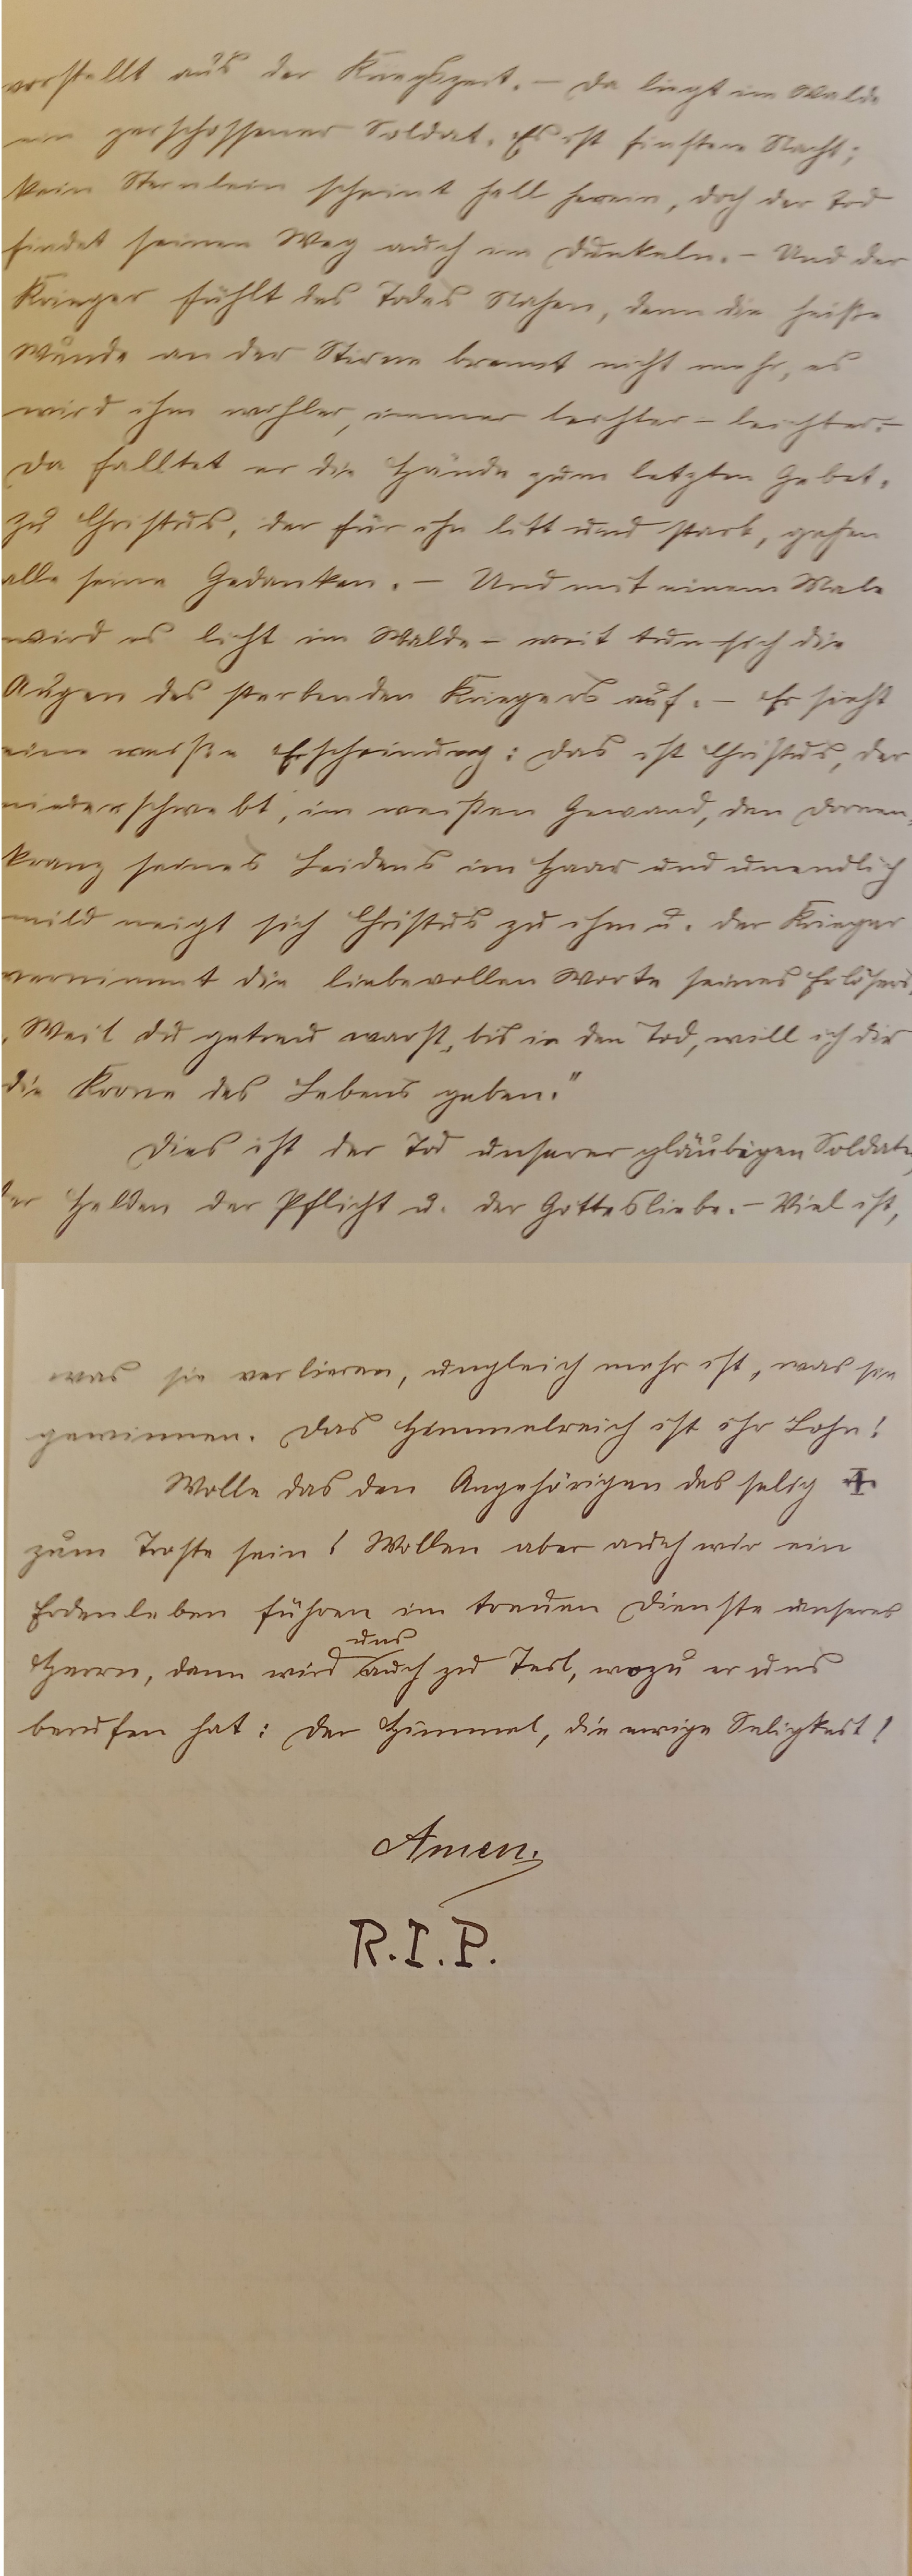 vorstellt aus der Kriegszeit. – Da liegt im Walde
ein zerschossener Soldat. Es ist finstere Nacht;
kein Sternlein scheint hell herein, doch der Tod
findet seinen Weg auch im Dunkeln. – Und der
Krieger fühlt des Todes Nahen, denn die heiße
Wunde an der Stirne brennt nicht mehr, es
wird ihm wohler, immer leichter – leichter. –
Da falltet er die Hände zum letzten Gebet.
Zu Christus, der für ihn litt und starb, gehen
alle seine Gedanken. – Und mit einem Male
wird es licht im Walde – weit tun sich die
Augen des sterbenden Kriegers auf. – Er sieht
eine weiße Erscheinung: Das ist Christus, der
niederschwebt, im weißen Gewand, den Dornen-
kranz seines Leidens im Haar und unendlich
mild neigt sich Christus zu ihm u. der Krieger
vernimmt die liebevollen Worte seines Erlösers,
„Weil du getreu warst, bis in den Tod, will ich dir
die Krone des Lebens geben."
Dies ist der Tod unserer gläubigen Soldaten,
der Helden der Pflicht u. der Gottesliebe. – Viel ist,
was sie verlieren, ungleich mehr ist, was sie
gewinnen. Das Himmelreich ist ihr Lohn!
Wolle das den Angehörigen des selig ✝
zum Troste sein! Wollen aber auch wir ein
Erdenleben führen im treuen Dienste unseres
Herrn, dann wird uns auch zu Teil, wozu er uns
berufen hat: Der Himmel, die ewige Seligkeit!
Amen.
R.I.P.